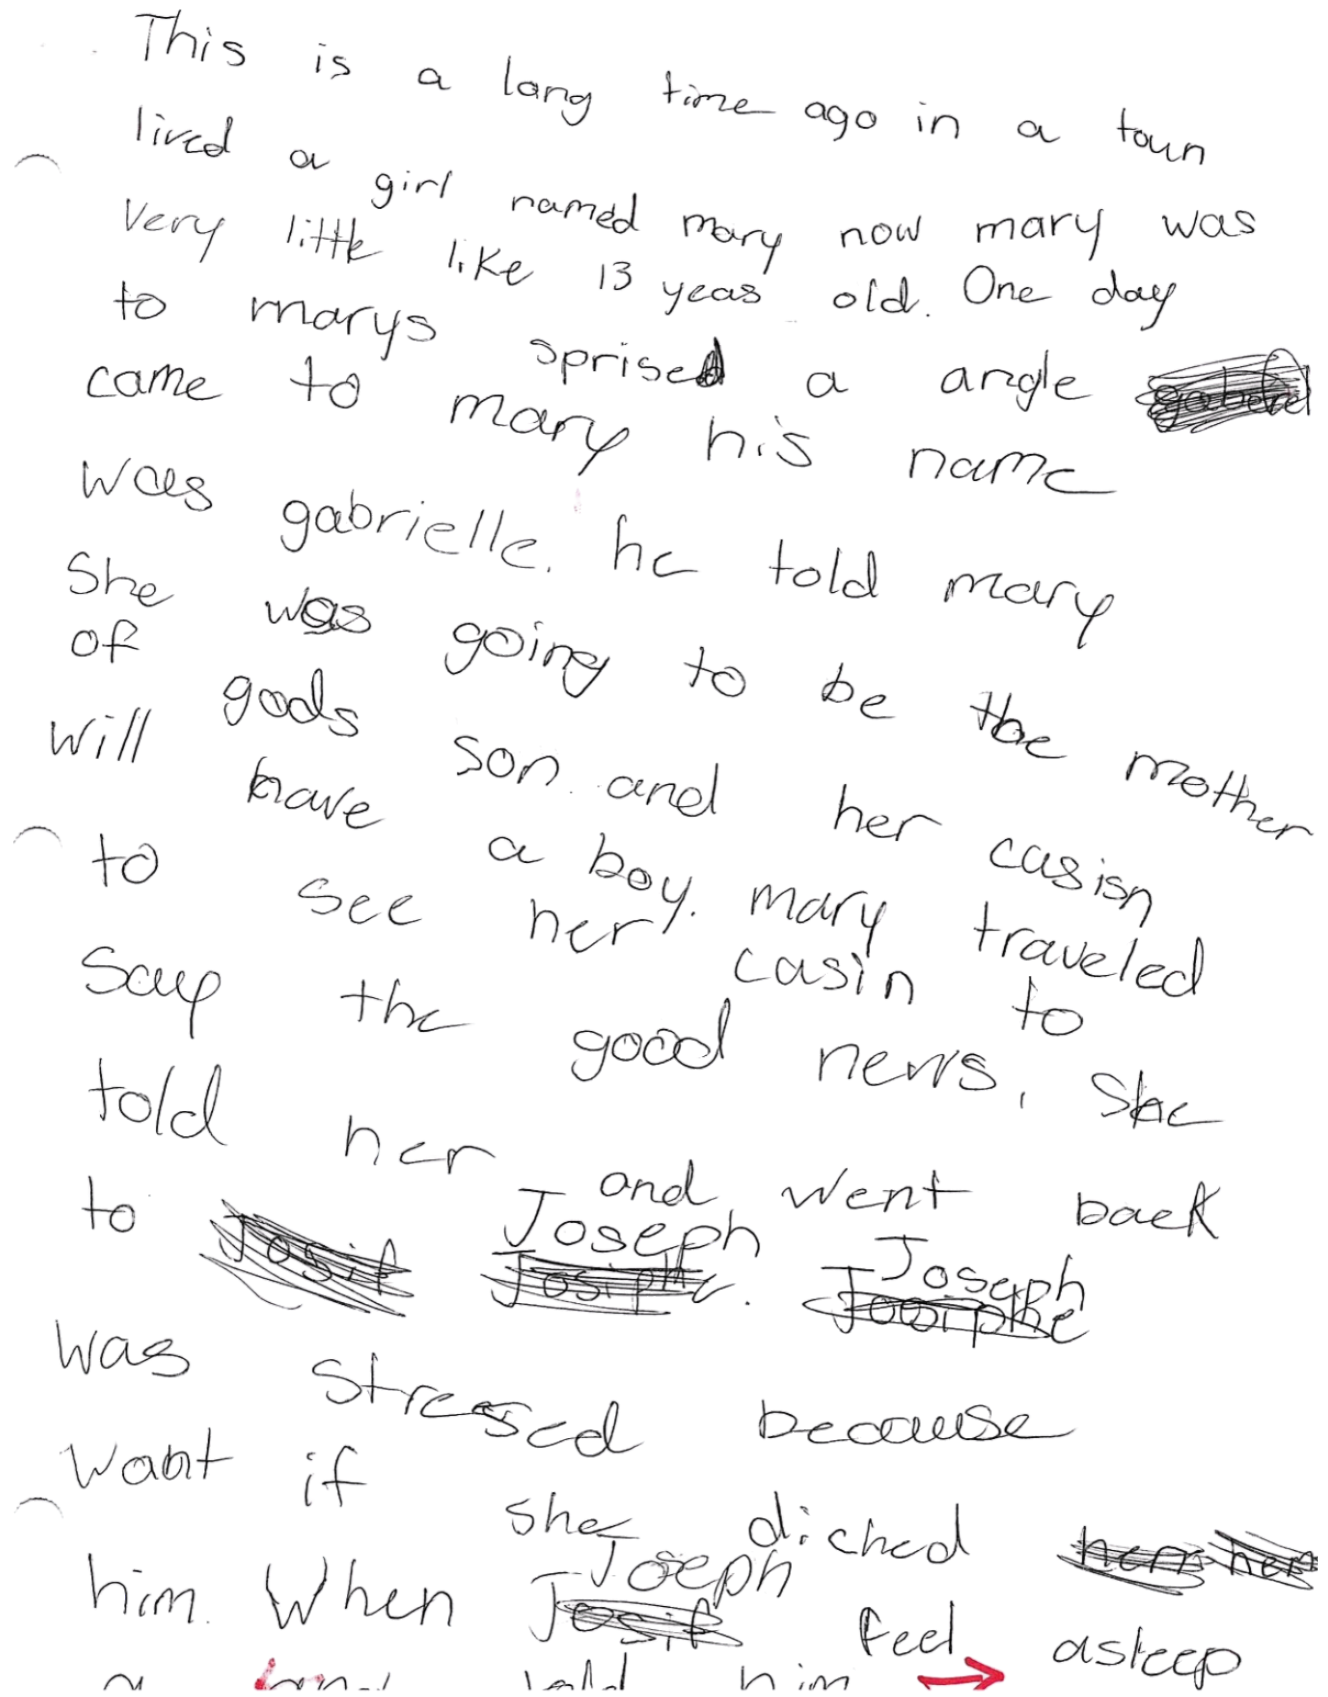 This is a lang time ago in a toun
lived a girl named mary now mary was
very little like 13 yeas old. One day
to marys sprised a angle
came to mary his name
was gabrielle. he told mary
She was going to be the mother
of gods son and her casisn
will have a boy. mary traveled
to see her casin to
say the good news, She
told her and went back
to Joseph. Joseph
was stressed because
want if she diched
him. When Joseph feel asleep
a told him →